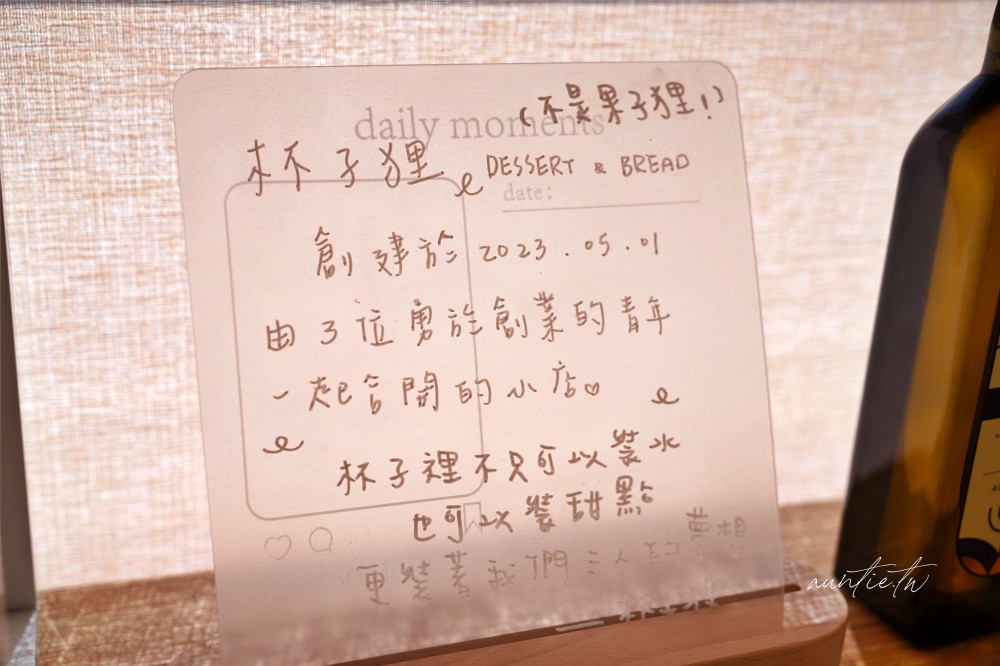 daily moments
(不是果子狸!)
杯子狸
DESSERT & BREAD
date;
創建於 2023.05.01
由3位勇於創業的青年
一起合開的小店♡
杯子裡不只可以裝水
也可以裝甜點
更裝著我們三人的夢想
— 杯子狸
auntie.tw